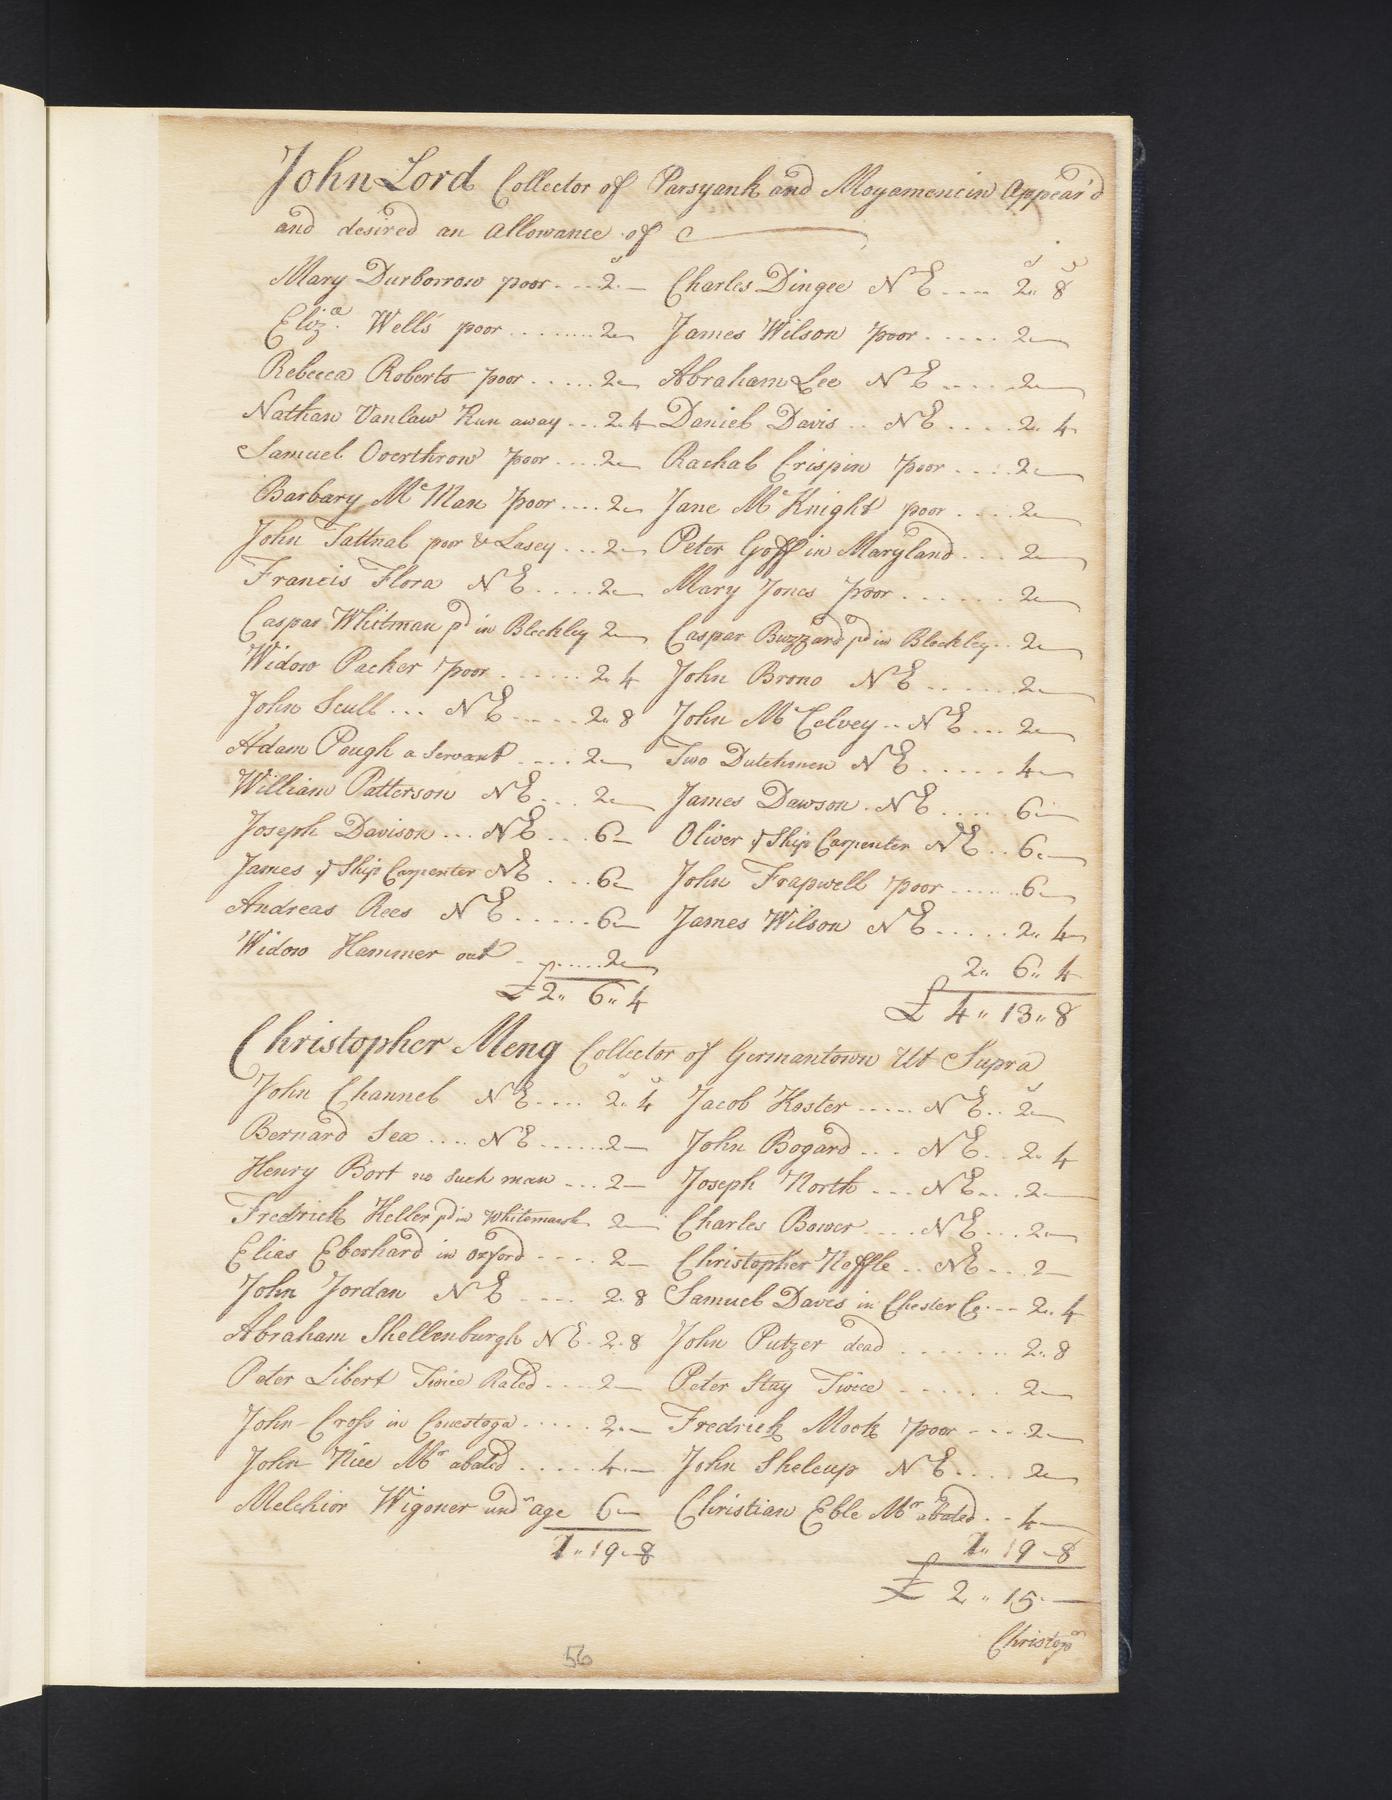 John Lord Collector of Parsyank and Moyamencin Appear'd
and desired an Allowance of
Mary Durborrow poor .... 2 — Charles Dingee N E .... 2 .. 8
Eliz.a Wells poor ........ 2 — James Wilson poor ..... 2 —
Rebecca Roberts poor ..... 2 — Abraham Lee N E .... 2 —
Nathan Vanlaw Run away ... 2 . 4 Daniel Davis .. N E .... 2 .. 4
Samuel Overthrow poor .... 2 — Rachal Crispin poor .... 2 —
Barbary Mc Man poor .... 2 — Jane Mc Knight poor .... 2 —
John Tattnal poor & Lasey ... 2 — Peter Goff in Maryland ... 2 —
Francis Flora N E .... 2 — Mary Jones poor ...... 2 —
Caspar Whitman pd in Blockley 2 — Caspar Buzzard pd in Blockley .. 2 —
Widow Packer poor ...... 2 . 4 John Brono N E ...... 2 —
John Scull ... N E .... 2 .. 8 John Mc Celvey .. N E ... 2 —
Adam Pough a Servant .... 2 — Two Dutchmen N E ..... 4 —
William Patterson N E ... 2 — James Dawson . N E .... 6 —
Joseph Davison ... N E ... 6 — Oliver ye Ship Carpenter N E .. 6 —
James ye Ship Carpenter N E ... 6 — John Frapwell poor ...... 6 —
Andreas Rees N E ..... 6 — James Wilson N E ..... 2 .. 4
Widow Hammer out ...... 2 — 2 .. 6 .. 4
£ 2 .. 6 .. 4 £ 4 .. 13 .. 8
Christopher Meng Collector of Germantown Ut Supra
John Channel N E .... 2 .. 4 Jacob Koster ..... N E .. 2 —
Bernard Sex .... N E ...... 2 — John Bogard ... N E .. 2 .. 4
Henry Bort no such man ... 2 — Joseph North ... N E ... 2 —
Fredrick Keller pd in Whitemarsh 2 — Charles Bower .... N E ... 2 —
Elias Eberhard in oxford .... 2 — Christopher Neffle .. N E ... 2 —
John Jordan N E .... 2 . 8 Samuel Daves in Chester Co. ... 2 .. 4
Abraham Shellenburgh N E . 2 . 8 John Putzer dead ....... 2 .. 8
Peter Libert Twice Rated .... 2 — Peter Stay Twice ...... 2 —
John Cross in Conestoga ..... 2 . — Fredrick Mock poor .... 2 —
John Nice Mr abated ..... 4 . — John Sheleup N E .... 2 —
Melchior Wigoner undr age 6 — Christian Eble Mr abated .. 4 —
1 .. 19 .. 8 1 .. 19 .. 8
£ 2 .. 15 . —
Christopr
56